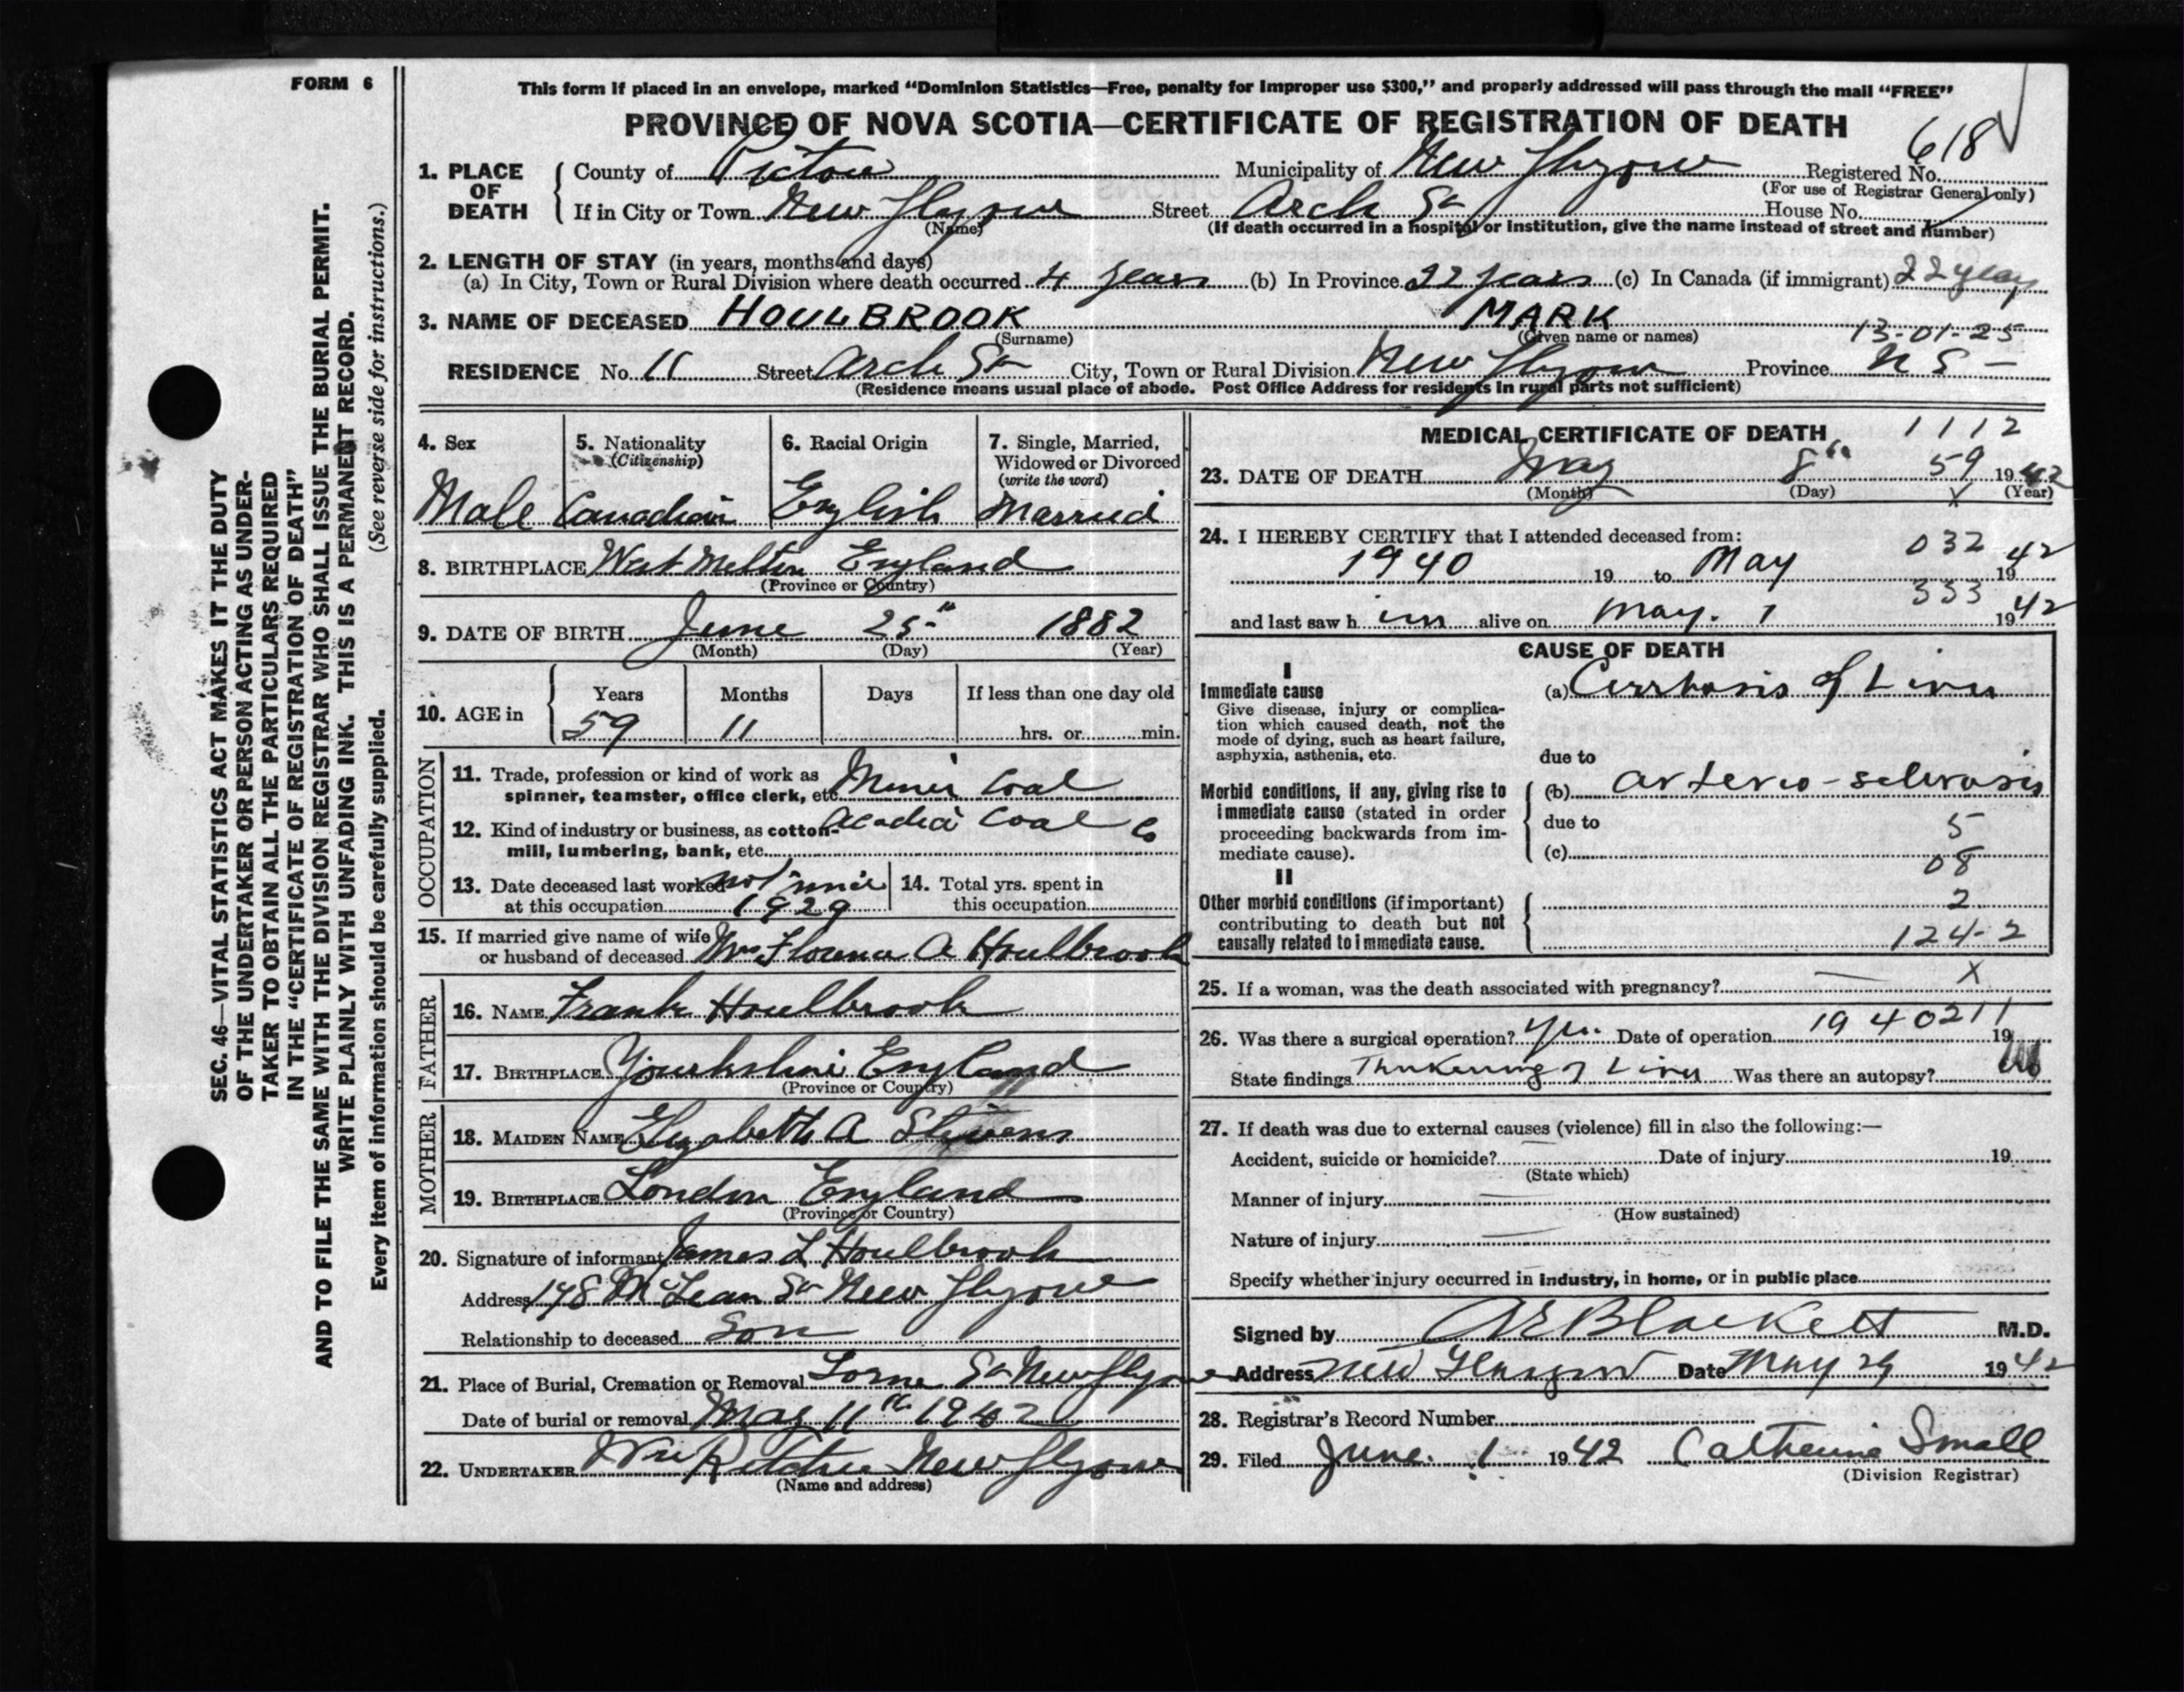 FORM 6
This form if placed in an envelope, marked “Dominion Statistics—Free, penalty for improper use $300,” and properly addressed will pass through the mail “FREE”
PROVINCE OF NOVA SCOTIA—CERTIFICATE OF REGISTRATION OF DEATH
618
1. PLACE OF DEATH County of Pictou Municipality of New Glasgow Registered No.
(For use of Registrar General only)
If in City or Town New Glasgow Street Arch St House No.
(Name) (If death occurred in a hospital or institution, give the name instead of street and number)
2. LENGTH OF STAY (in years, months and days)
(a) In City, Town or Rural Division where death occurred 4 years (b) In Province 22 years (c) In Canada (if immigrant) 22 years
3. NAME OF DECEASED HOULBROOK MARK
(Surname) (Given name or names) 13-01-25
RESIDENCE No. 11 Street Arch St City, Town or Rural Division New Glasgow Province N S —
(Residence means usual place of abode. Post Office Address for residents in rural parts not sufficient)
4. Sex 5. Nationality 6. Racial Origin 7. Single, Married,
(Citizenship) Widowed or Divorced
(write the word)
Male Canadian English Married
8. BIRTHPLACE West Melton England
(Province or Country)
9. DATE OF BIRTH June 25th 1882
(Month) (Day) (Year)
10. AGE in Years Months Days If less than one day old
59 11 hrs. or min.
OCCUPATION
11. Trade, profession or kind of work as Miner Coal
spinner, teamster, office clerk, etc.
12. Kind of industry or business, as cotton- Acadia Coal Co
mill, lumbering, bank, etc.
13. Date deceased last worked not since 14. Total yrs. spent in
at this occupation 1929 this occupation
15. If married give name of wife
or husband of deceased Mrs Florence A Houlbrook
FATHER
16. NAME Frank Houlbrook
17. BIRTHPLACE Yourkshire England
(Province or Country)
MOTHER
18. MAIDEN NAME Elizabeth A Stivens
19. BIRTHPLACE London England
(Province or Country)
20. Signature of informant James L Houlbrook
Address 178 McLean St New Glasgow
Relationship to deceased Son
21. Place of Burial, Cremation or Removal Lorne St New Glasgow
Date of burial or removal May 11th 1942
22. UNDERTAKER Wm Ritchie New Glasgow
(Name and address)
MEDICAL CERTIFICATE OF DEATH 1112
23. DATE OF DEATH May 8th 59 1942
(Month) (Day) X (Year)
24. I HEREBY CERTIFY that I attended deceased from:
032
1940 19 to May 1942
333
and last saw him alive on May. 1 1942
CAUSE OF DEATH
I
Immediate cause (a) Cirrhosis of Liver
Give disease, injury or complica-
tion which caused death, not the
mode of dying, such as heart failure,
asphyxia, asthenia, etc. due to
Morbid conditions, if any, giving rise to (b) arterio-sclerosis
immediate cause (stated in order due to 5
proceeding backwards from im-
mediate cause). (c)
08
II
Other morbid conditions (if important) 2
contributing to death but not
causally related to immediate cause. 124-2
25. If a woman, was the death associated with pregnancy? — X
26. Was there a surgical operation? Yes. Date of operation 1940211 19
State findings Thickening of Liver Was there an autopsy?
27. If death was due to external causes (violence) fill in also the following:—
Accident, suicide or homicide? Date of injury 19
(State which)
Manner of injury —
(How sustained)
Nature of injury —
Specify whether injury occurred in industry, in home, or in public place
Signed by A E Blackett M.D.
Address New Glasgow Date May 29 1942
28. Registrar’s Record Number
29. Filed June 1 1942 Catherine Small
(Division Registrar)
SEC. 46—VITAL STATISTICS ACT MAKES IT THE DUTY
OF THE UNDERTAKER OR PERSON ACTING AS UNDER-
TAKER TO OBTAIN ALL THE PARTICULARS REQUIRED
IN THE “CERTIFICATE OF REGISTRATION OF DEATH”
AND TO FILE THE SAME WITH THE DIVISION REGISTRAR WHO SHALL ISSUE THE BURIAL PERMIT.
WRITE PLAINLY WITH UNFADING INK. THIS IS A PERMANENT RECORD.
Every item of information should be carefully supplied. (See reverse side for instructions.)